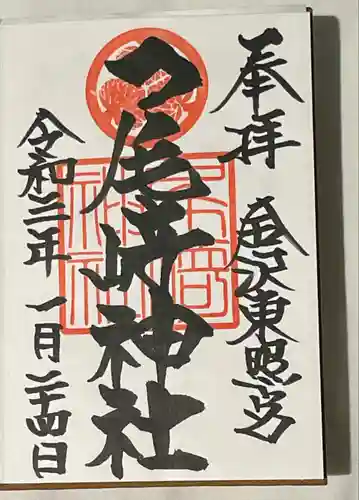 奉拝
金沢東照宮
尾崎神社
令和三年一月二十四日